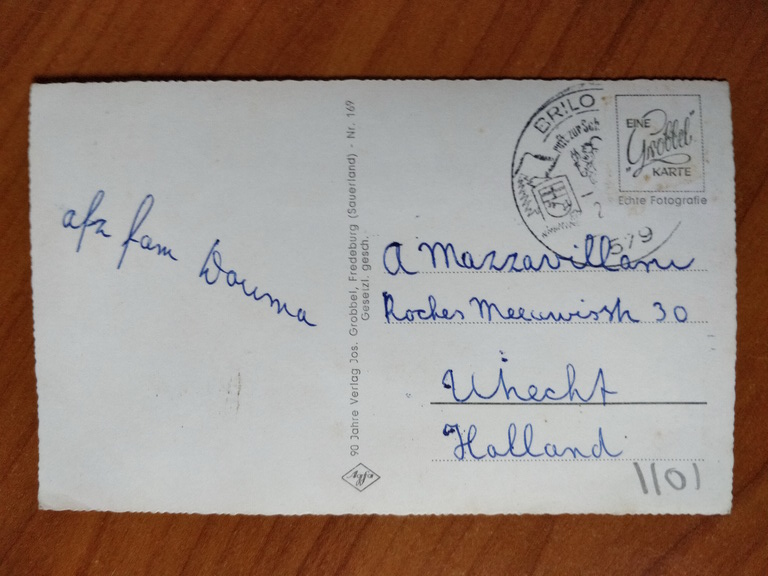 afz fam Douma
90 Jahre Verlag Jos. Grobbel, Fredeburg (Sauerland) - Nr. 169
Gesetzl. gesch.
Agfa
BRILO
579
EINE
"Grobbel"
KARTE
Echte Fotografie
A Mazzavillani
Roches Meeuwisstr 30
Utrecht
Holland
1101